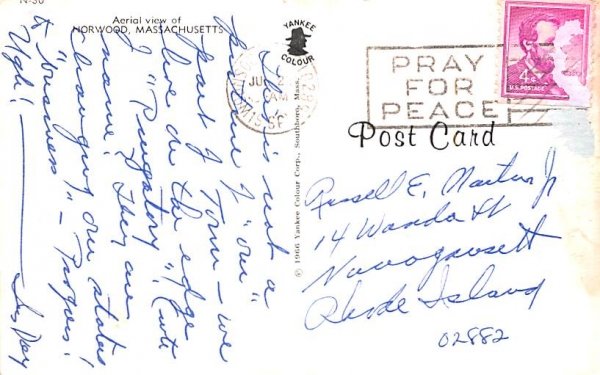 N-30
Aerial view of
NORWOOD, MASSACHUSETTS
This is not a
picture of "our"
part of Town – we
live on the edge
of "Purgatory" (cute
name! They are
changing our status
to "business" – Progress!
Ugh!
YANKEE
COLOUR
© 1966 Yankee Colour Corp., Southboro, Mass.
PRAY
FOR
PEACE
4¢
U.S. POSTAGE
Post Card
Russell E. Martin Jr
14 Wanda St
Narragansett
Rhode Island
02882